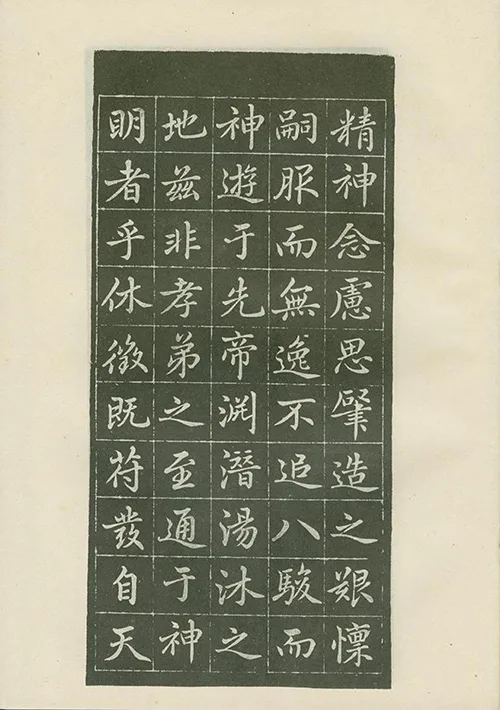 精神念慮思肇造之艱懍
嗣服而無逸不追八駿而
神遊于先帝渊潛湯沐之
地兹非孝弟之至通于神
明者乎休徵既苻發自天